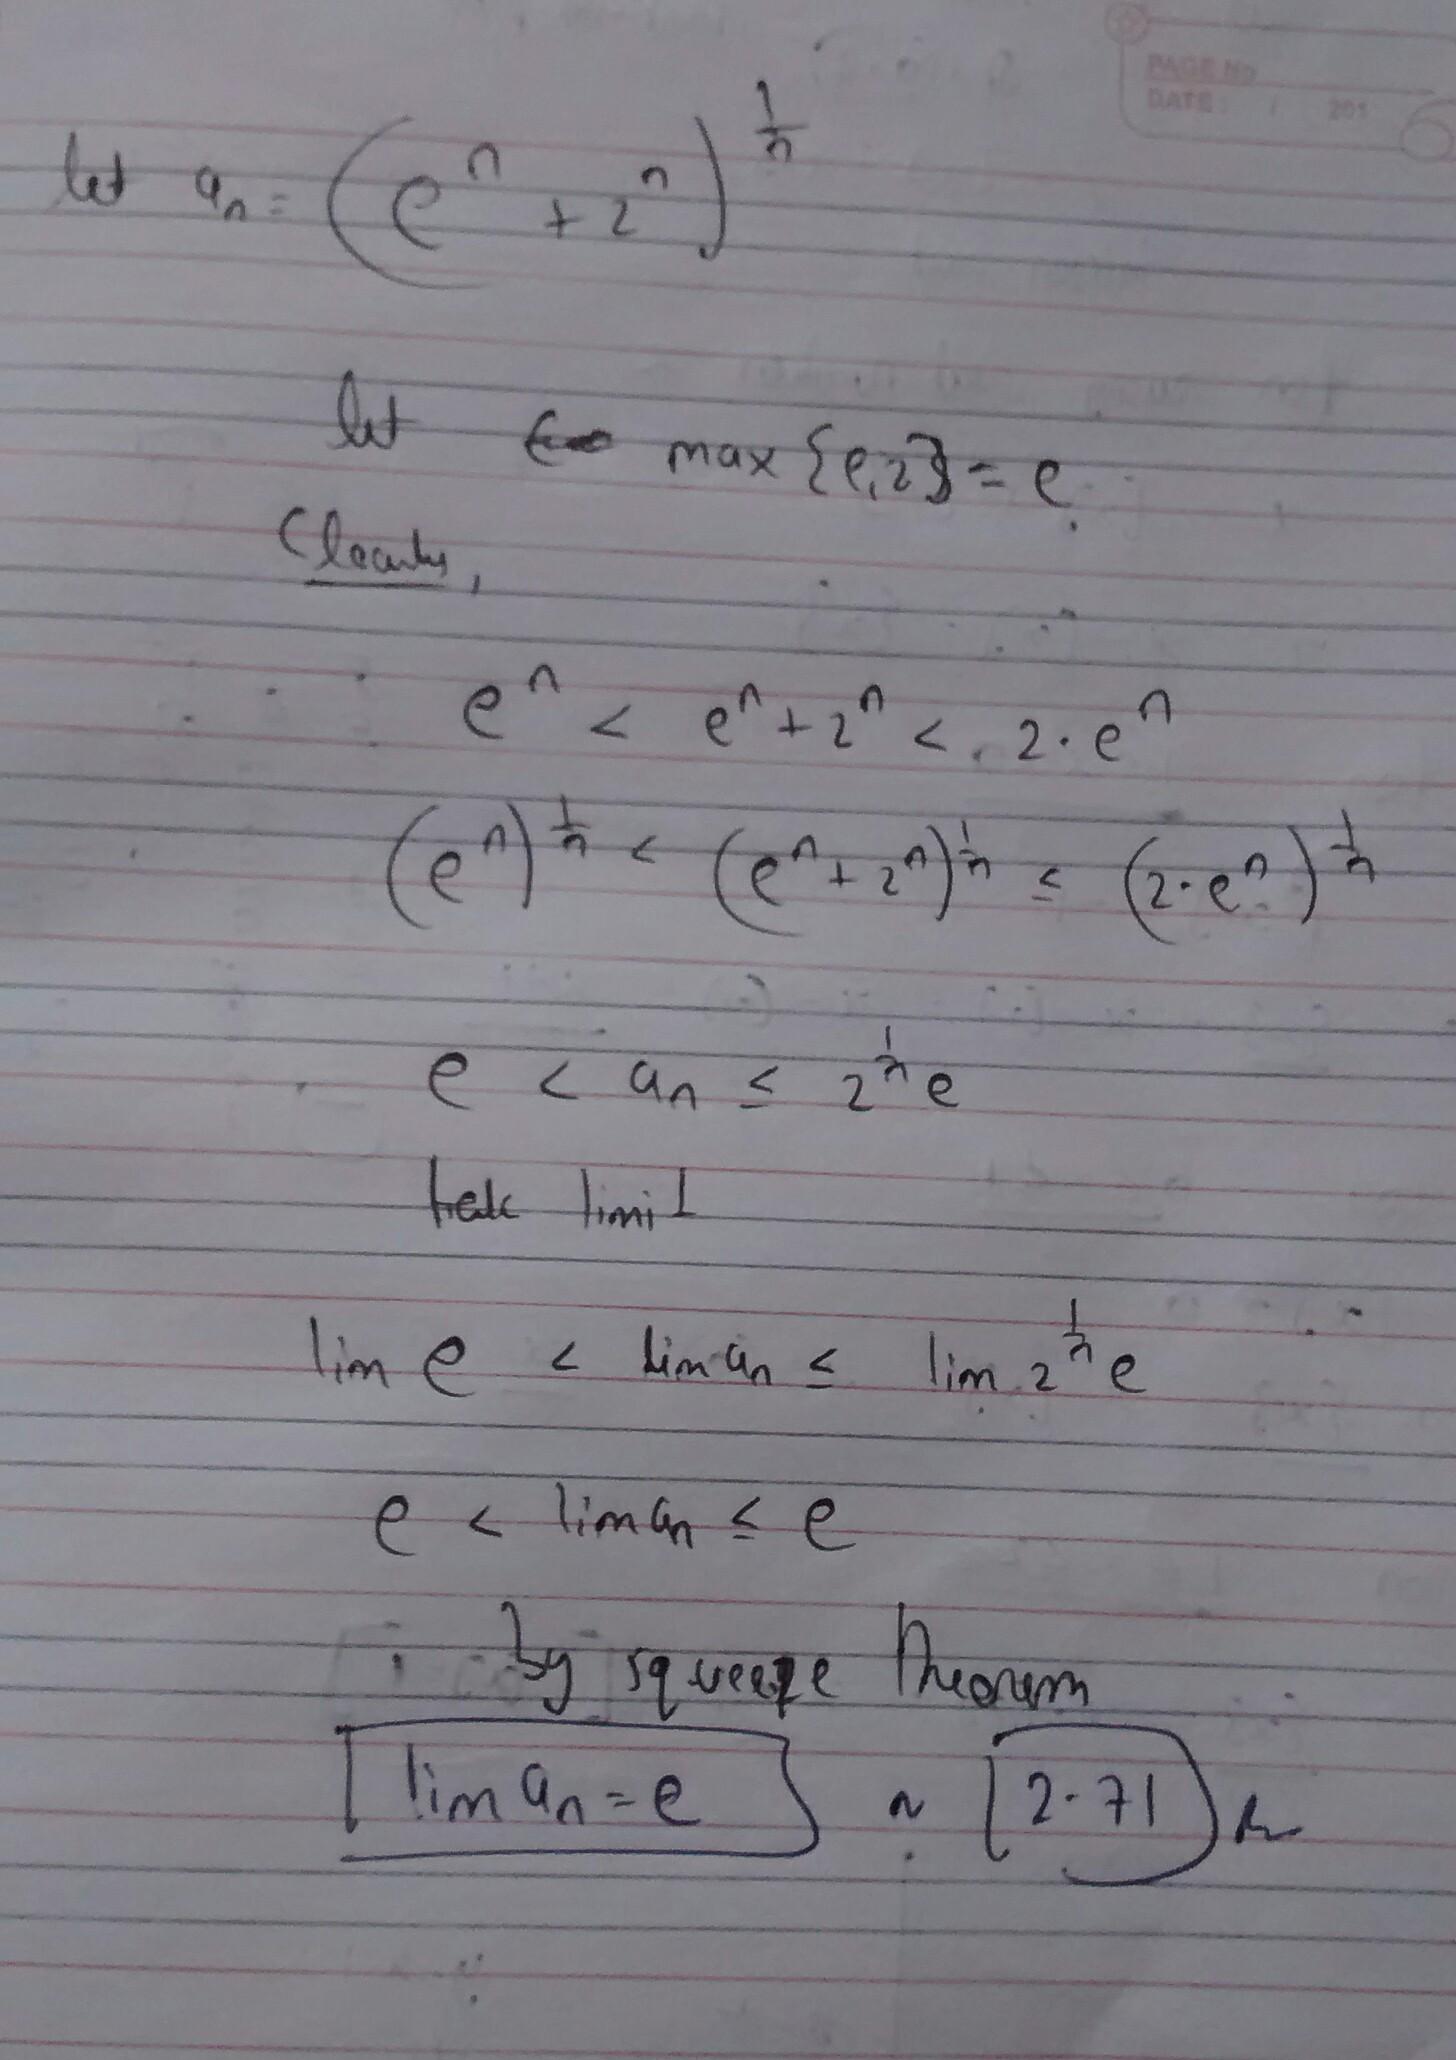 PAGE NO
DATE: / 201
let aₙ = (eⁿ + 2ⁿ)^(1/n)
let max {e,2} = e.
Clearly,
eⁿ < eⁿ + 2ⁿ < 2·eⁿ
(eⁿ)^(1/n) < (eⁿ + 2ⁿ)^(1/n) ≤ (2·eⁿ)^(1/n)
e < aₙ ≤ 2^(1/n) e
take limit
lim e < lim aₙ ≤ lim 2^(1/n) e
e < lim aₙ ≤ e
by squeeze theorem
lim aₙ = e ~ 2.71